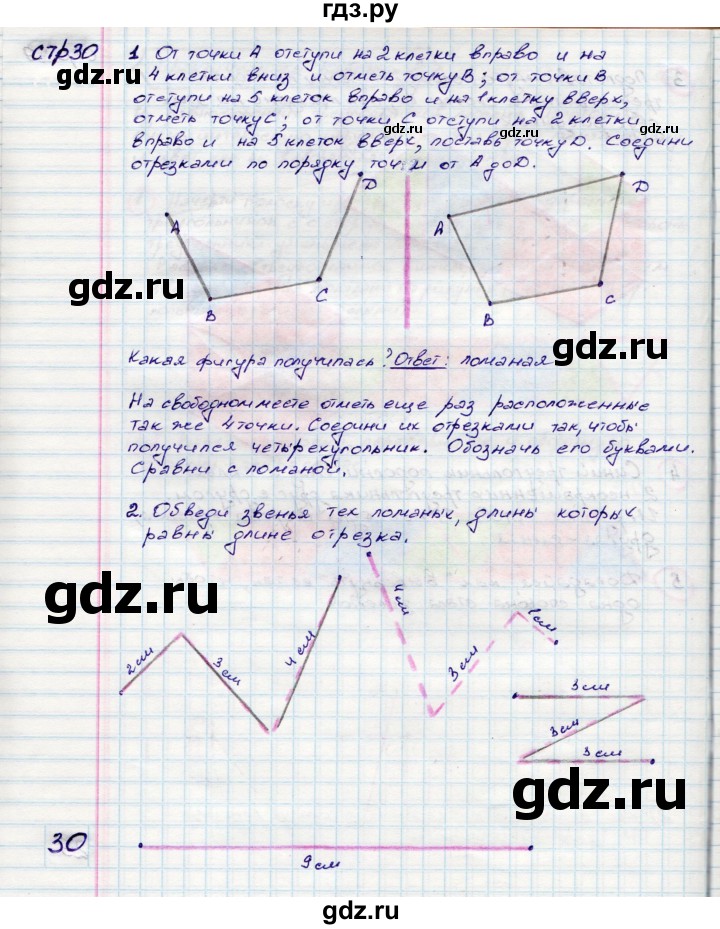 гдз.ру
стр30
1 От точки А отступи на 2 клетки вправо и на
4 клетки вниз и отметь точку В; от точки В
отступи на 5 клеток вправо и на 1 клетку вверх,
отметь точку С; от точки С отступи на 2 клетки
вправо и на 5 клеток вверх, поставь точку D. Соедини
отрезками по порядку точки от А до D.
A
B
C
D
A
B
C
D
Какая фигура получилась? Ответ: ломаная
На свободном месте отметь еще раз расположенные
так же 4 точки. Соедини их отрезками так, чтобы
получился четырехугольник. Обозначь его буквами.
Сравни с ломаной.
2. Обведи звенья тех ломаных, длины которых
равны длине отрезка.
2 см
3 см
4 см
4 см
3 см
1 см
3 см
3 см
3 см
9 см
30
gdz.ru
gdz.ru
gdz.ru
gdz.ru
gdz.ru
gdz.ru
gdz.ru
gdz.ru
gdz.ru
gdz.ru
gdz.ru
gdz.ru